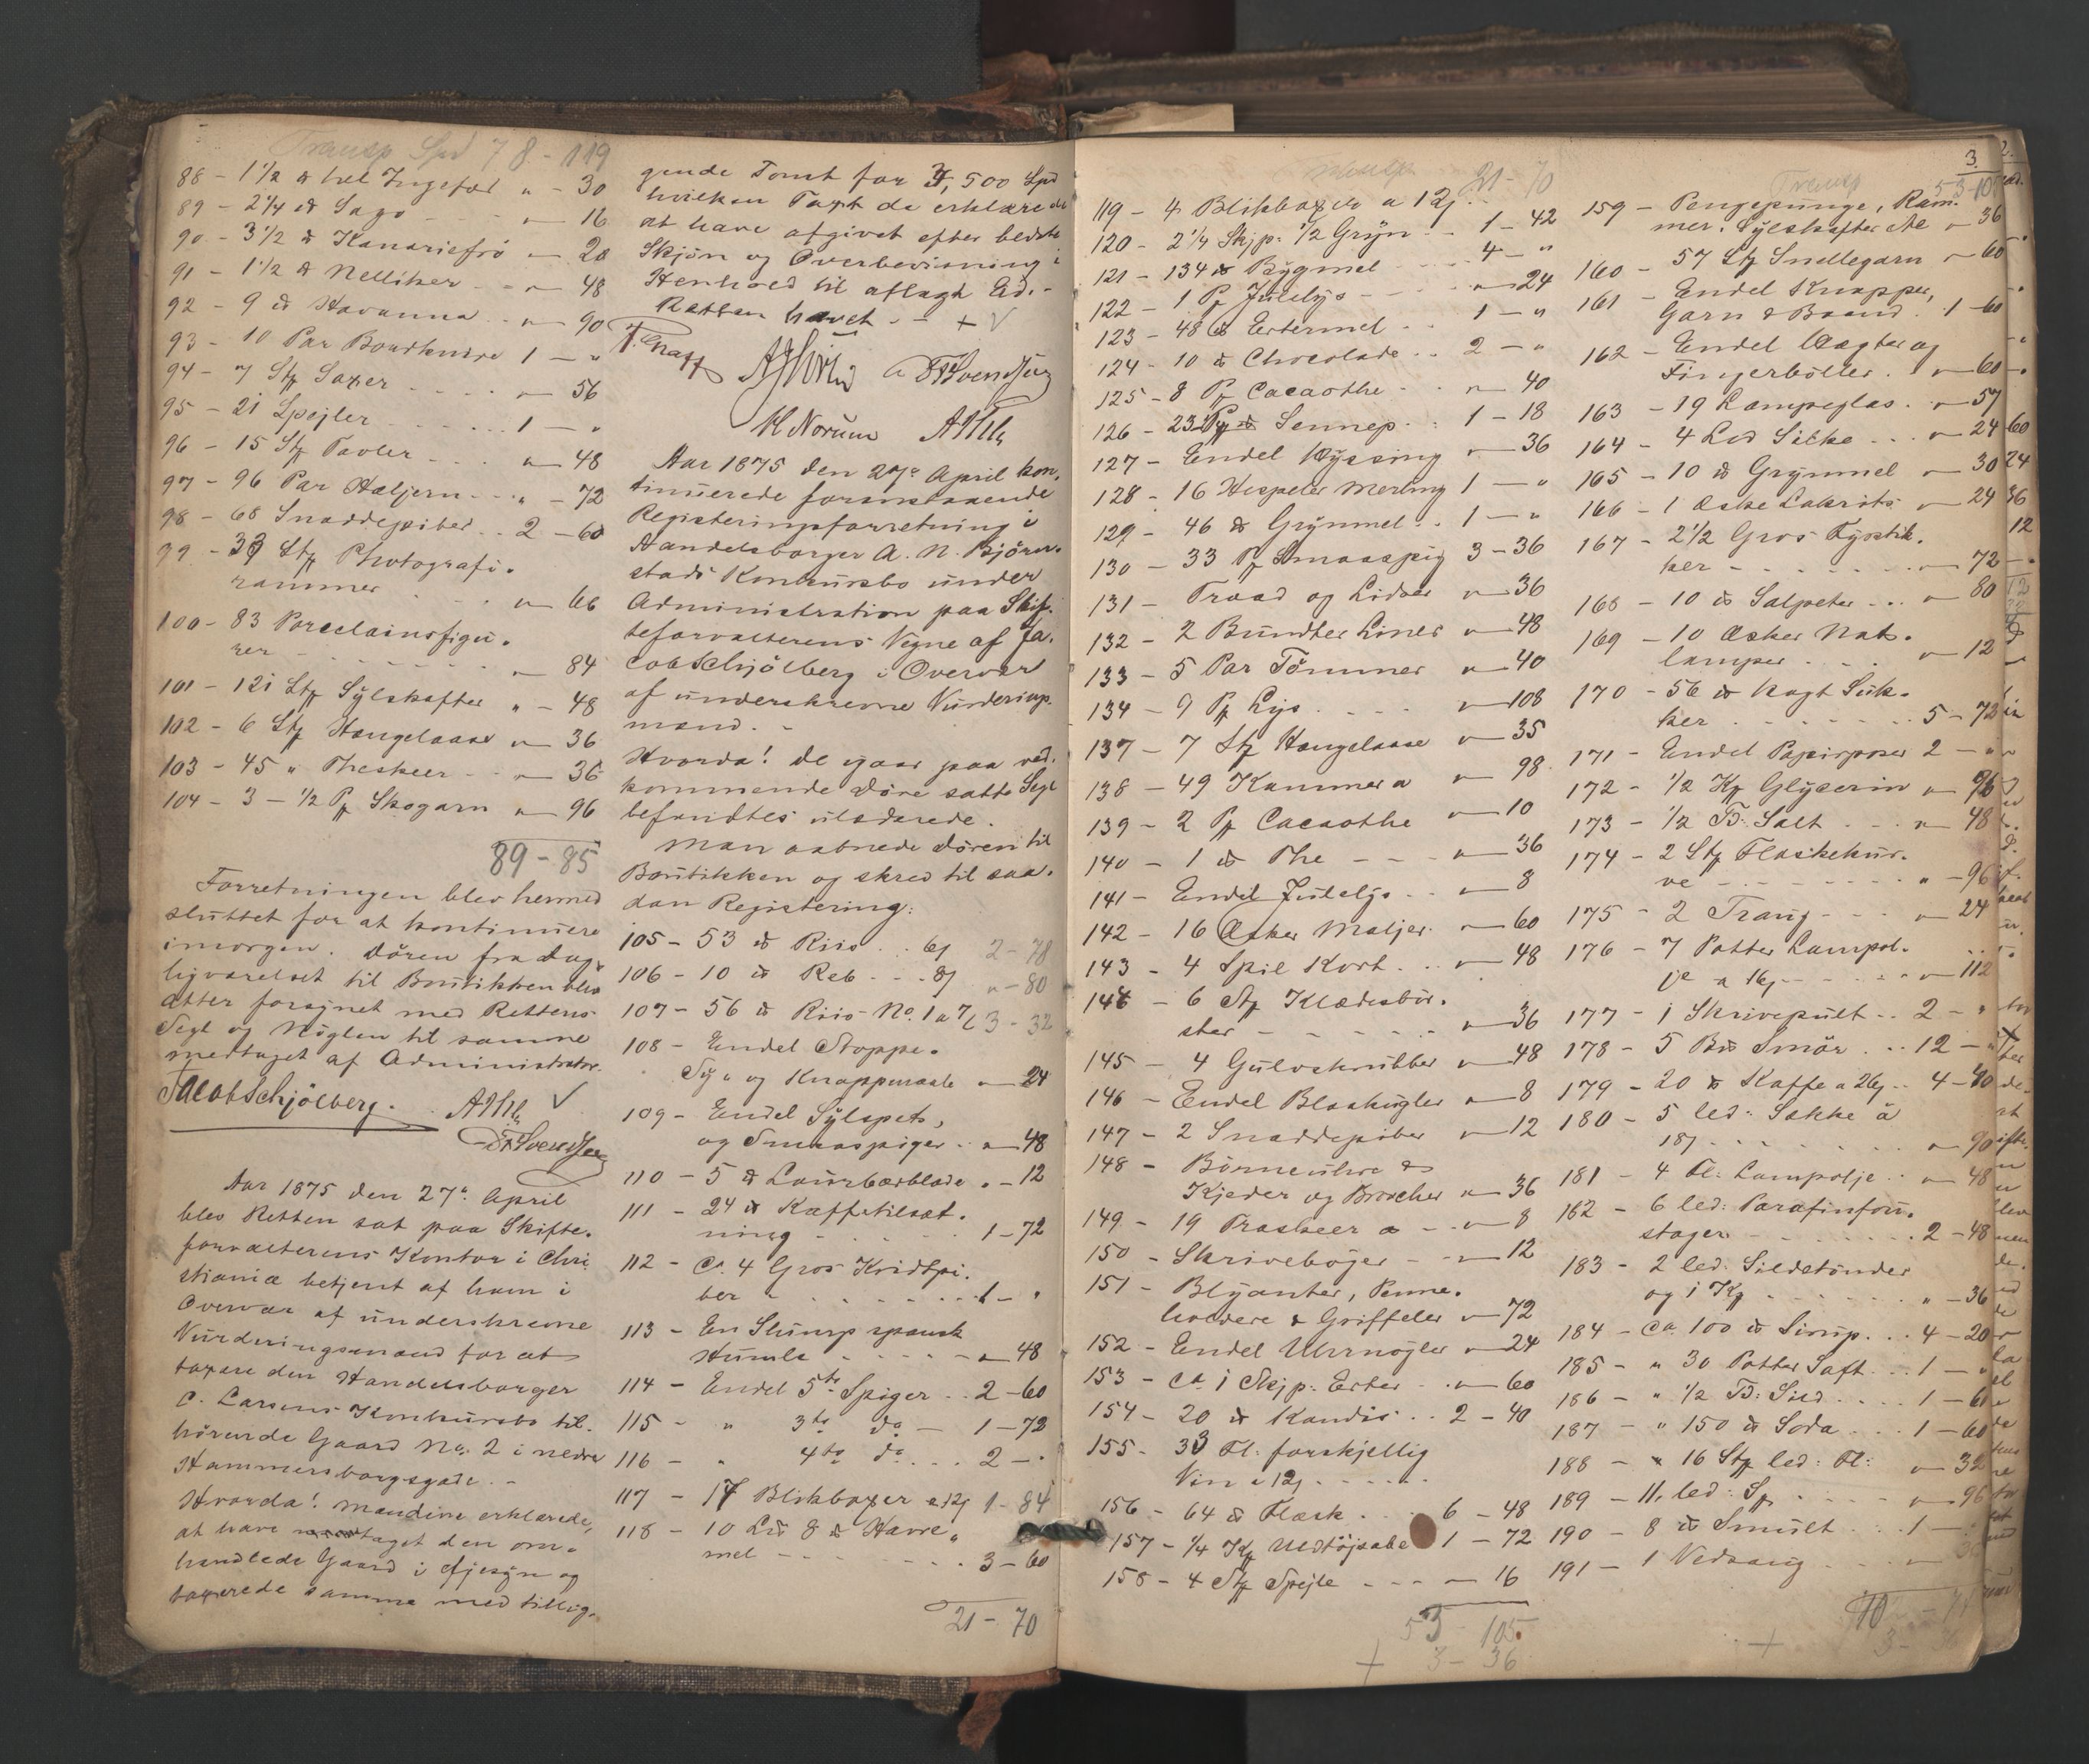 Transp Spd 78-119
88 - 1 1/2 ℔ hel Ingefær " - 30
89 - 2 1/4 ℔ Sago " - 16
90 - 3 1/2 ℔ Kanariefrö " - 20
91 - 1 1/2 ℔ Nelliker " - 48
92 - 9 ℔ Havanna " - 90
93 - 10 Par Bordknive 1 - "
94 - 7 Stk Saxer " - 56
95 - 21 Speiler 1 - "
96 - 15 Stk Tavler " - 48
97 - 96 Par Hæljern " - 72
98 - 68 Snaddepiber 2 - 60
99 - 33 Stk Photografi-
rammer " - 66
100 - 83 Porcelainsfigu-
rer " - 84
101 - 121 Stk Sylskafter " - 48
102 - 6 Stk Hængelaase " - 36
103 - 45 " Theskeer " - 36
104 - 3 - 1/2 Pk Skogarn " - 96
89 - 85
Forretningen blev hermed
sluttet for at kontinuere
imorgen. Dören fra Dag-
ligværelset til Boutikken blev
atter forsynet med Rettens
Segl og Nöglen til samme
medtaget af Administrator.
Jacob Schjölberg.
Aar 1875 den 27de April
blev Retten sat paa Skifte-
forvalterens Kontor i Chri
stiania betjent af ham i
Overvær af underskrevne
Vurderingsmænd for at
taxere den Handelsborger
C. Larsens Konkursbo til-
hörende Gaard No. 2 i nedre
Hammersborggade. -
Hvorda! Mændene erklærede,
at have taget den om-
handlede Gaard i Öjesyn og
taxerede samme med tillig-
gende Tomt for 3,500 Spd
hvilken Taxt de erklærede
at have afgivet efter bedste
Skjön og Overbevisning i
Henhold til aflagt Ed. -
Retten hævet - +
F. Svendsen
M Norum
Aar 1875 den 27de April kon-
tinuerede foranstaaende
Registeringsforretning i
Handelsborger A. N. Björn-
stads Konkursbo under
Administration paa Skif-
teforvalterens Vegne af Ja-
cob Schjölberg i Overvær
af underskrevne Vurderings-
mænd. -
Hvorda! De igaar paa ved-
kommende Döre satte Segl
befandtes uskadte.
Man aabnede Dören til
Boutikken og skred til saa-
dan Registering:
105 - 53 ℔ Riis 6 2 - 78
106 - 10 ℔ Reb 8 " - 80
107 - 56 ℔ Riis No. 1 a 7 3 - 32
108 - Endel Stoppe-
Sy- og Knappenaale " - 24
109 - Endel Sylspets,
og Smaaspiger " - 48
110 - 5 ℔ Laurbærblade " - 12
111 - 24 ℔ Kaffetilsæt-
ning 1 - 72
112 - Ca. 4 Gros Kridtpi-
ber 1 - "
113 - En Slump spansk
Humle " - 48
114 - Endel 5te Spiger 2 - 60
115 - " 3te do 1 - 72
116 - " 4te do 2 - "
117 - 17 Blikboxer a 12 1 - 84
118 - 10 Lis 8 ℔ Havre-
mel 3 - 60
21 - 70
3
Transp 21 - 70
119 - 4 Blikboxer a 12
120 - 2 1/4 Skjp: 1/2 Gryn 1 - 42
121 - 134 ℔ Bygmel 4 - "
122 - 1 Pk Julelys " - 24
123 - 48 ℔ Ertermel 1 - "
124 - 10 ℔ Chocolade 2 - "
125 - 8 Pk Cacaothe " - 40
126 - 23 Sennep 1 - 18
127 - Endel Kyssing " - 36
128 - 16 Hespeler Merling 1 - "
129 - 46 ℔ Grynmel 1 - "
130 - 33 Pk Smaaspig 3 - 36
131 - Traad og Lidser " - 36
132 - 2 Bundter Liner " - 48
133 - 5 Par Tömmer " - 40
134 - 9 Pk Lys " - 108
137 - 7 Stk Hængelaase " - 35
138 - 49 Kammer a " - 98
139 - 2 Pk Cacaothe " - 10
140 - 1 ℔ The " - 36
141 - Endel Julelys " - 8
142 - 16 Æsker Maljer " - 60
143 - 4 Spil Kort " - 48
144 - 6 Stk Klædesbör-
ster " - 36
145 - 4 Gulvskrubber " - 48
146 - Endel Blaakugler " - 8
147 - 2 Snaddepiber " - 12
148 - Börneuhre &
Kjeder og Brocher " - 36
149 - 19 Træskeer a " - 8
150 - Skriveböger " - 12
151 - Blyanter, Penne-
holdere & Griffeler " - 72
152 - Endel Uhrnögler " - 24
153 - Ca. 1 Skjp: Erter " - 60
154 - 20 ℔ Kandis 2 - 40
155 - 33 Fl: forskjellig
Vin a 12
156 - 64 ℔ Flæsk 6 - 48
157 - 1/4 Kg Udtöjsabe 1 - 72
158 - 4 Stk Spejle " - 16
53 - 105
+ 3 - 36
Transp 53 - 105
159 - Pengepunge, Ram-
mer, Sylskafter etc " - 36
160 - 57 Stk Snellegarn " - 60
161 - Endel Knapper,
Garn & Baand 1 - 60
162 - Endel Vægter og
Fingerböller " - 60
163 - 19 Lampeglas " - 57
164 - 4 Lod Silke " - 24
165 - 10 ℔ Grynmel " - 30
166 - 1 Æske Lakrits " - 24
167 - 2 1/2 Gros Fyrstik-
ker " - 72
168 - 10 ℔ Salpeter " - 80
169 - 10 Æsker Nat-
lamper " - 12
170 - 56 ℔ Kagt Suk-
ker 5 - 72
171 - Endel Papirposer 2 - "
172 - 1/2 Kg Glycerin " - 96
173 - 1/2 Td: Salt " - 48
174 - 2 Stk Flaskekur-
ve " - 96
175 - 2 Traug " - 24
176 - 7 Potter Lampol-
je a 16 " - 112
177 - 1 Skrivepult 2 - "
178 - 5 Bd Smör 12 - "
179 - 20 ℔ Kaffe a 26 4 - 40
180 - 5 led: Sække a
18 " - 90
181 - 4 Fl: Lampolje " - 48
182 - 6 led: Parafinfou-
stager 2 - 48
183 - 2 led: Sildetönder
og 1 Kg " - 36
184 - Ca. 100 ℔ Sirup 4 - 20
185 - " 30 Potter Saft 1 - "
186 - " 1/2 Td: Sild 1 - 6
187 - " 150 ℔ Soda 1 - 60
188 - " 16 Stk led: Fl: " - 32
189 - 11 led: Sp " - 96
190 - 8 ℔ Smult 1 -
191 - 1 Vedsaug